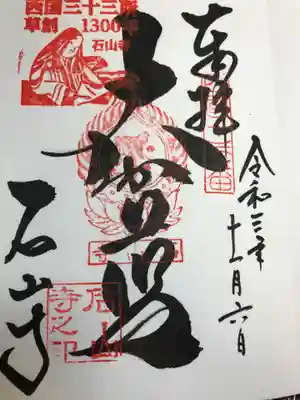 奉拝
令和三年
十一月六日
大伽藍
石山寺
西国三十三所
草創1300年
石山寺
石山
寺之印